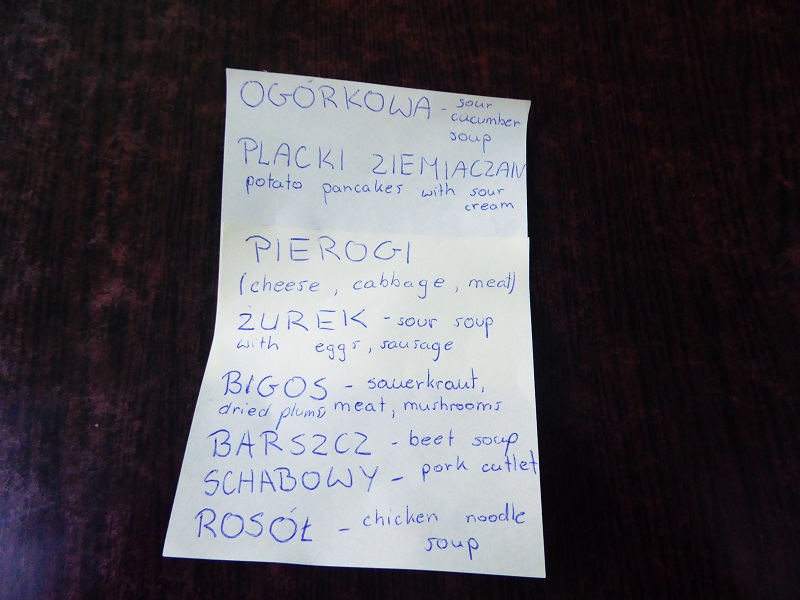 OGÓRKOWA - sour
cucumber
soup
PLACKI ZIEMIACZAN
potato pancakes with sour
cream
PIEROGI
(cheese, cabbage, meat)
ŻUREK - sour soup
with eggs, sausage
BIGOS - sauerkraut,
dried plums, meat, mushrooms
BARSZCZ - beet soup
SCHABOWY - pork cutlet
ROSÓŁ - chicken noodle
soup